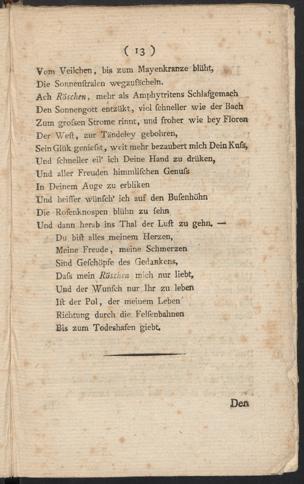 ( 13 )
Vom Veilchen, bis zum Mayenkranze blüht,
Die Sonnenstralen wegzufächeln.
Ach Röschen, mehr als Amphytritens Schlafgemach
Den Sonnengott entzükt, viel schneller wie der Bach
Zum grossen Strome rinnt, und froher wie bey Floren
Der West, zur Tändeley gebohren,
Sein Glük geniesst, weit mehr bezaubert mich Dein Kuss,
Und schneller eil' ich Deine Hand zu drüken,
Und aller Freuden himmlischen Genuss
In Deinem Auge zu erbliken
Und heisser wünsch' ich auf den Busenhöhn
Die Rosenknospen blühn zu sehn
Und dann herab ins Thal der Lust zu gehn. —
Du bist alles meinem Herzen,
Meine Freude, meine Schmerzen
Sind Geschöpfe des Gedankens,
Dass mein Röschen mich nur liebt,
Und der Wunsch nur Ihr zu leben
Ist der Pol, der meinem Leben
Richtung durch die Felsenbahnen
Bis zum Todeshafen giebt.
Den